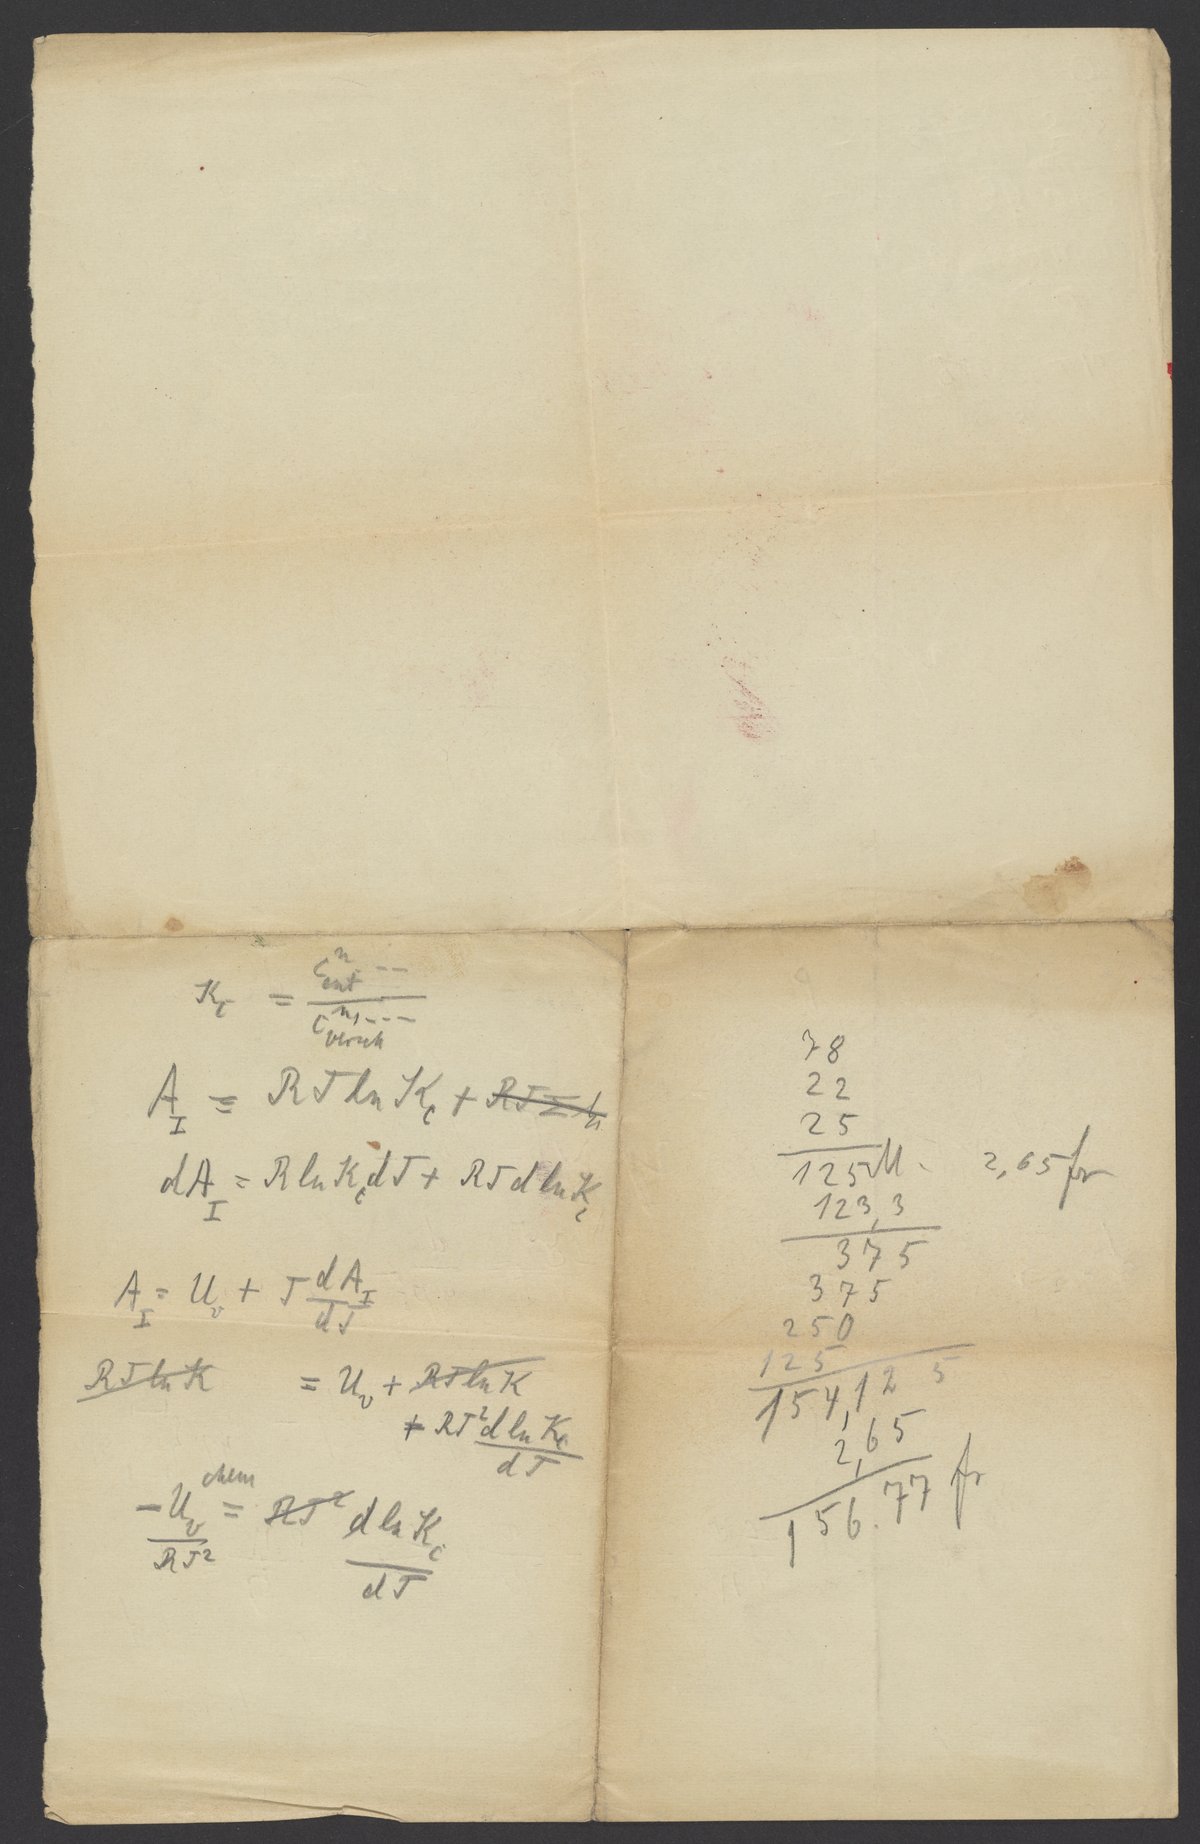 K_c = c^n_ent --- / c^n,---_versch
A_I = RT ln K_c + RTΣn
dA_I = R ln K_c dT + RT d ln K_c
A_I = U_v + T dA_I / dT
RT ln K = U_v + RT ln K
+ RT² d ln K_c / dT
- U_v chem / RT² = RT² d ln K_c / dT
78
22
25
125 M. 2,65 fr
123,3
375
375
250
125
154,125
2,65
156.77 fr